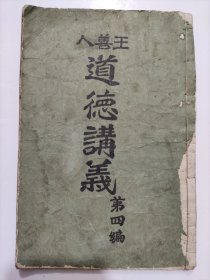 王善人
道德講義
第四編